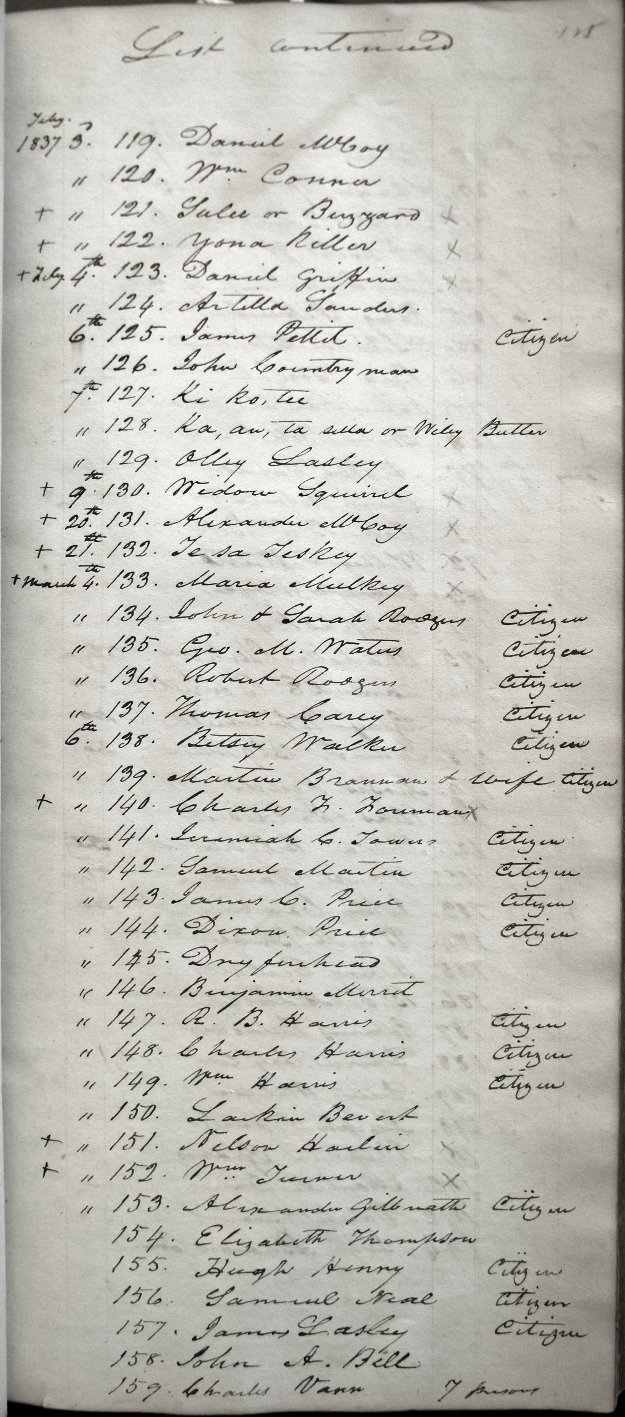 List continued
Feby.
1837 3. 119. Daniel McCoy
" 120. Wm Conner
+ " 121. Sulee or Buzzard x
+ " 122. Yona Killer x
+ Feby 4th. 123. Daniel Griffin x
" 124. Artilla Sanders.
6th. 125. James Pettit. Citizen
" 126. John Countryman
7th. 127. Ki ko, tee
" 128. Ka, au, ta silla or Wiley Butler
" 129. Olley Lasley
+ 9th. 130. Widow Squirrel x
+ 20th. 131. Alexander McCoy x
+ 21st. 132. Te sa Teskey x
+ March 4th. 133. Maria Mulkey x
" 134. John & Sarah Rodgers Citizen
" 135. Geo. M. Waters Citizen
" 136. Robert Rodgers Citizen
" 137. Thomas Carey Citizen
6th. 138. Betsey Walker Citizen
" 139. Martin Brannan & wife Citizen
+ " 140. Charles F. Foreman x
" 141. Jeremiah C. Towers Citizen
" 142. Samuel Martin Citizen
" 143. James C. Price Citizen
" 144. Dixon Price Citizen
" 145. Dry forehead
" 146. Benjamin Merrit
" 147. R. B. Harris Citizen
" 148. Charles Harris Citizen
" 149. Wm Harris Citizen
" 150. Larkin Bevert
+ " 151. Nelson Harlin x
+ " 152. Wm Turner x
" 153. Alexander Gilbreath Citizen
154. Elizabeth Thompson
155. Hugh Henry Citizen
156. Samuel Neal Citizen
157. James Lasley Citizen
158. John A. Bell
159. Charles Vann 7 persons